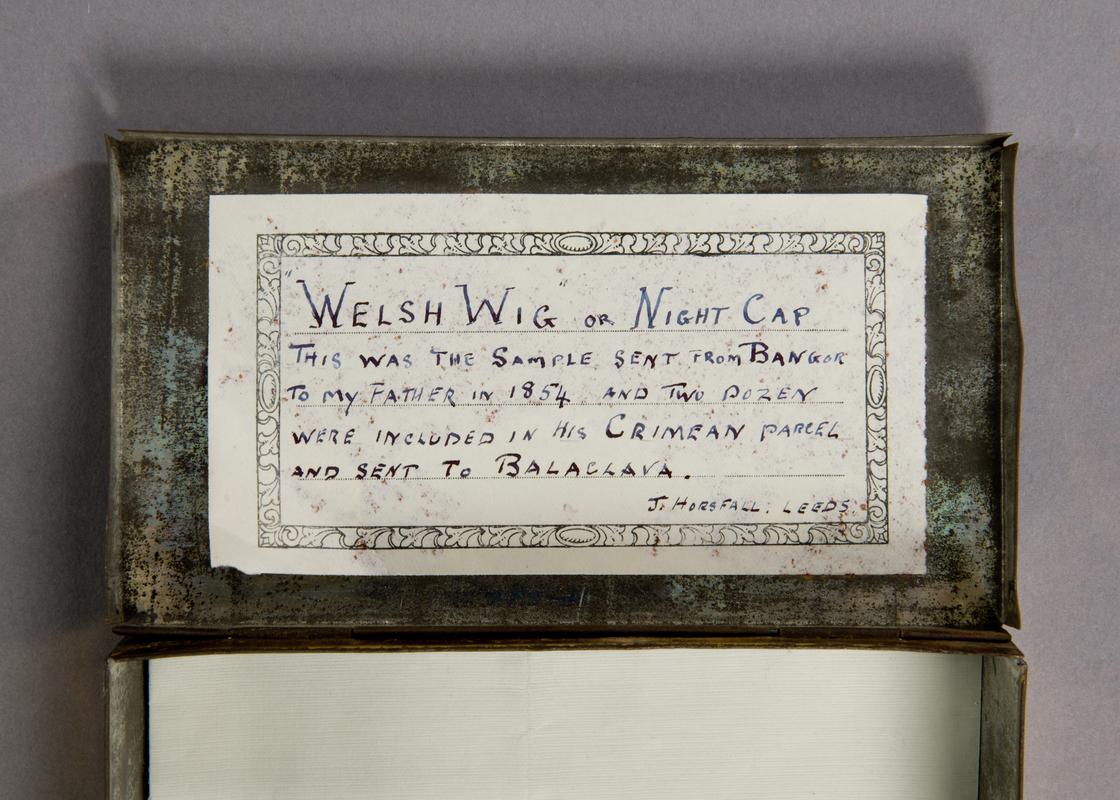 "Welsh Wig" or Night Cap
This was the Sample sent from Bangor
to my Father in 1854 and two dozen
were included in his Crimean parcel
and sent to Balaclava.
J. Horsfall. Leeds.